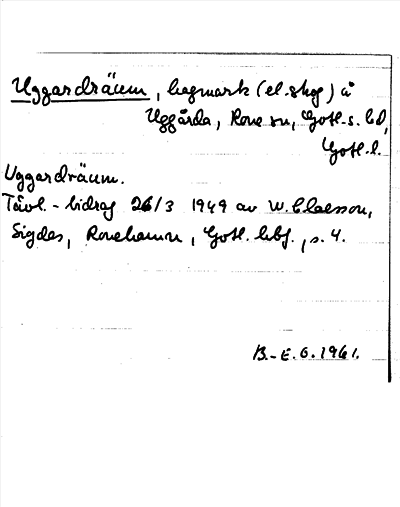 Uggardräum, hagmark (el. skog) å
Uggårda, Rone sn, Gotl. s. hd,
Gotl. l.
Uggardräum.
Tävl.-bidrag 26/3 1949 av W. Claesson,
Sigdes, Ronehamn, Gotl. hbf., s. 4.
B.-E. O. 1961.